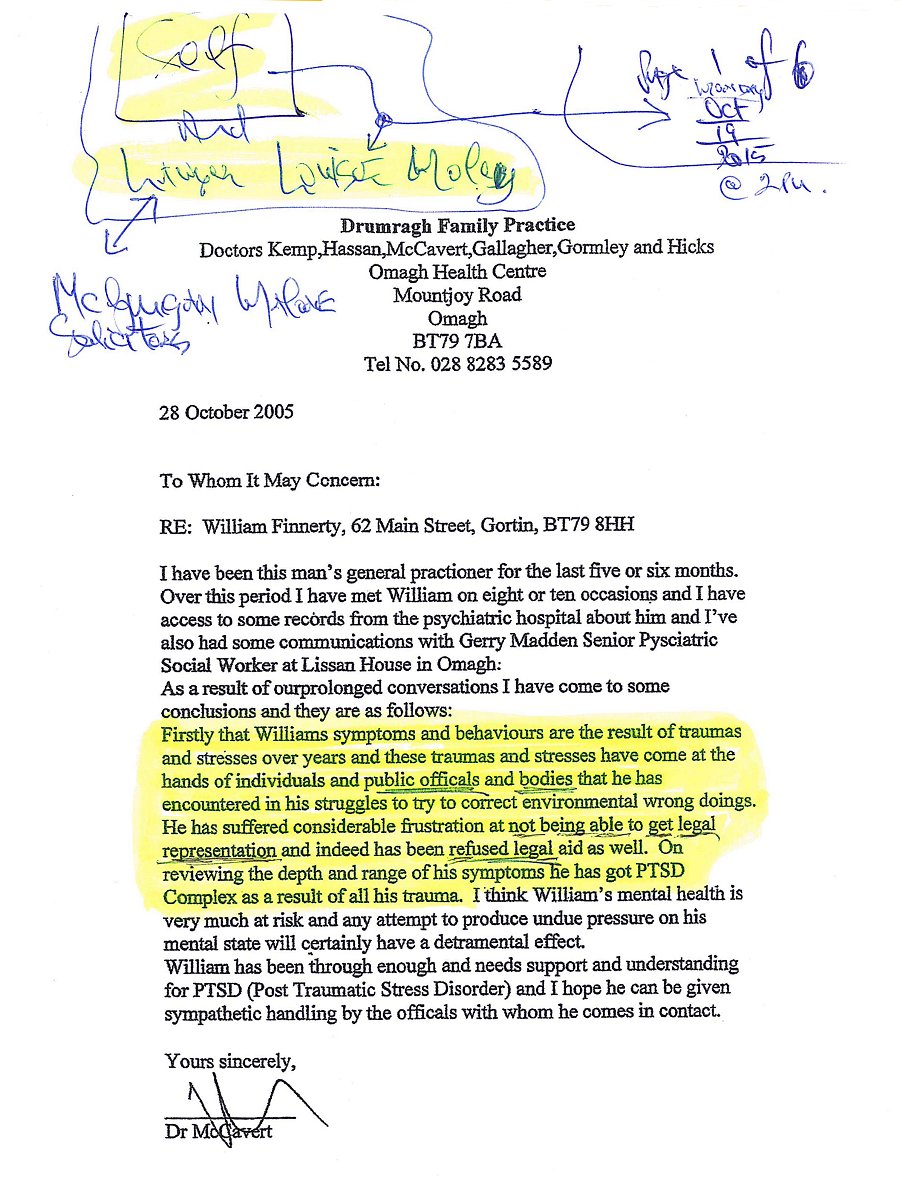 Self
And
Louise
Page 1 of 6
Monday
Oct
19
2015
@ 2PM.
Solicitors
Drumragh Family Practice
Doctors Kemp,Hassan,McCavert,Gallagher,Gormley and Hicks
Omagh Health Centre
Mountjoy Road
Omagh
BT79 7BA
Tel No. 028 8283 5589
28 October 2005
To Whom It May Concern:
RE: William Finnerty, 62 Main Street, Gortin, BT79 8HH
I have been this man's general practioner for the last five or six months.
Over this period I have met William on eight or ten occasions and I have
access to some records from the psychiatric hospital about him and I've
also had some communications with Gerry Madden Senior Pysciatric
Social Worker at Lissan House in Omagh:
As a result of ourprolonged conversations I have come to some
conclusions and they are as follows:
Firstly that Williams symptoms and behaviours are the result of traumas
and stresses over years and these traumas and stresses have come at the
hands of individuals and public officals and bodies that he has
encountered in his struggles to try to correct environmental wrong doings.
He has suffered considerable frustration at not being able to get legal
representation and indeed has been refused legal aid as well. On
reviewing the depth and range of his symptoms he has got PTSD
Complex as a result of all his trauma. I think William's mental health is
very much at risk and any attempt to produce undue pressure on his
mental state will certainly have a detramental effect.
William has been through enough and needs support and understanding
for PTSD (Post Traumatic Stress Disorder) and I hope he can be given
sympathetic handling by the officals with whom he comes in contact.
Yours sincerely,
Dr McCavert